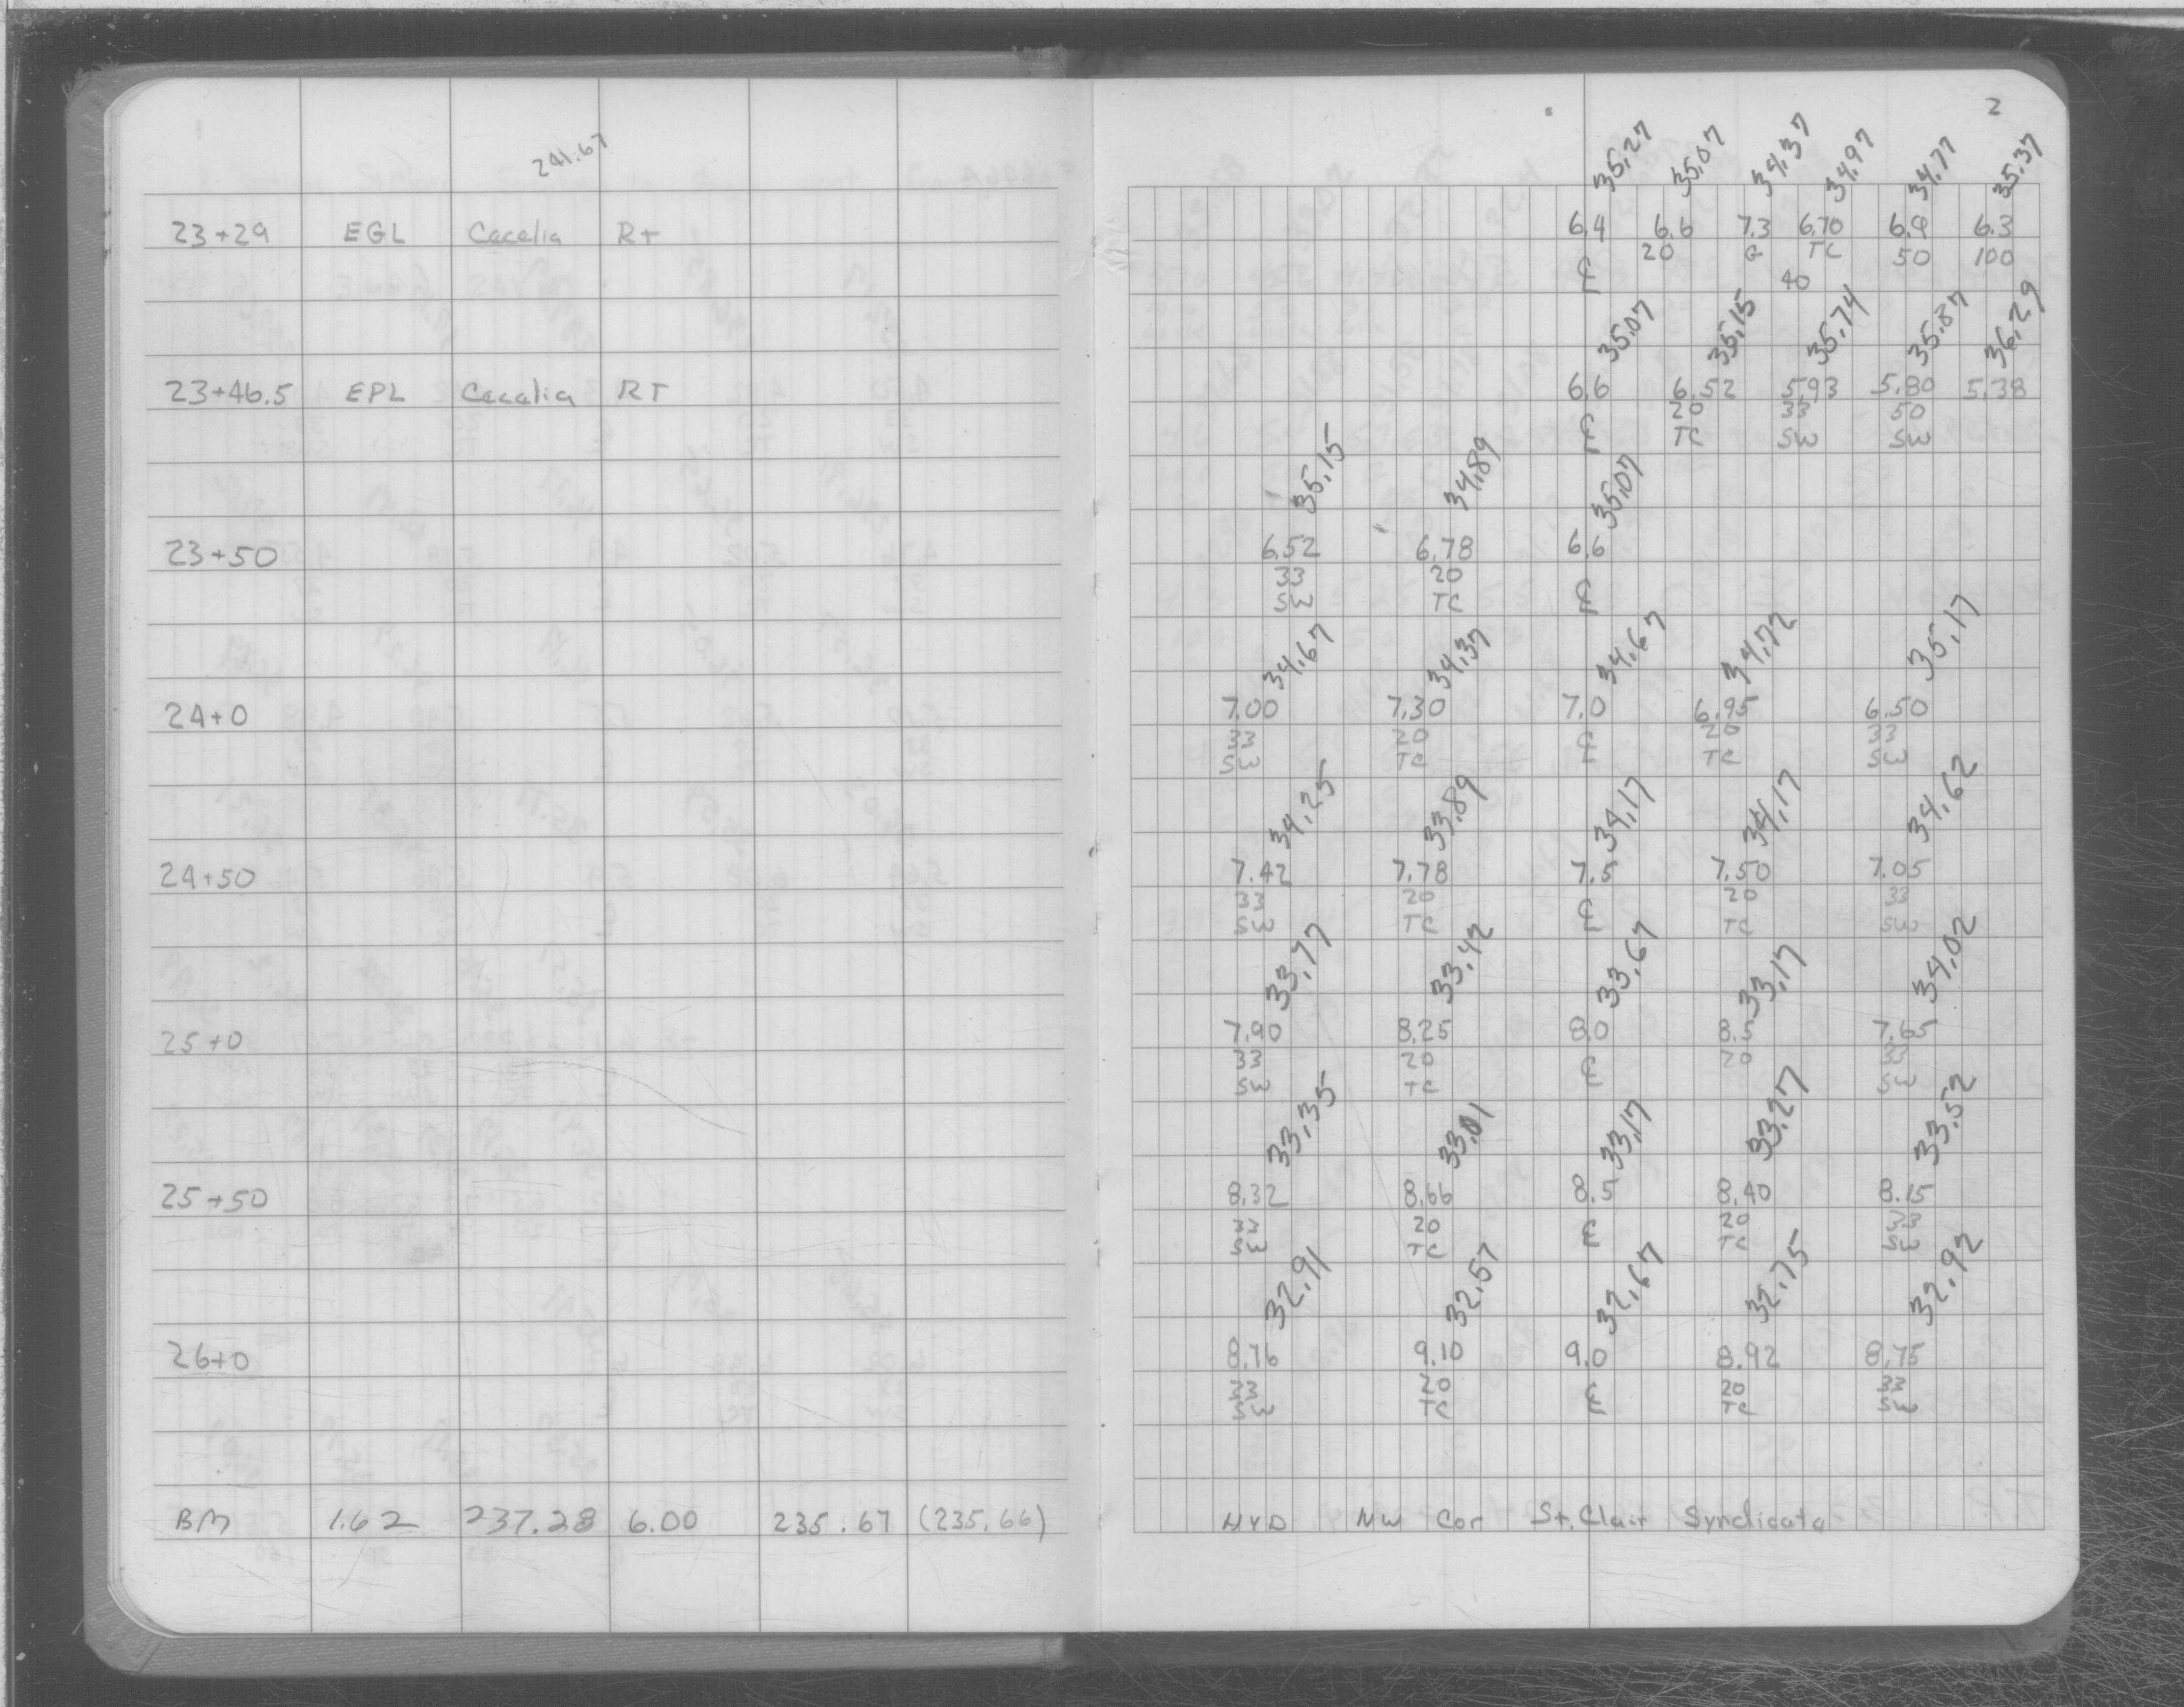 2
241.67
35.27 35.07 34.37 34.97 34.77 35.37
23+29 EGL Cecelia RT 6.4 6.6 7.3 6.70 6.9 6.3
℄ 20 G TC 50 100
40
35.07 35.15 35.74 35.87 36.29
23+46.5 EPL Cecelia RT 6.6 6.52 5.93 5.80 5.38
20 33 50
℄ TC SW SW
35.15 34.89 35.07
23+50 6.52 6.78 6.6
33 20
SW TC ℄
34.67 34.37 34.67 34.72 35.17
24+0 7.00 7.30 7.0 6.95 6.50
33 20 20 33
SW TC ℄ TC SW
34.25 33.89 34.17 34.17 34.62
24+50 7.42 7.78 7.5 7.50 7.05
33 20 20 33
SW TC ℄ TC SW
33.77 33.42 33.67 33.17 34.02
25+0 7.90 8.25 8.0 8.5 7.65
33 20 20 33
SW TC ℄ SW
33.35 33.01 33.17 33.27 33.52
25+50 8.32 8.66 8.5 8.40 8.15
33 20 20 33
SW TC ℄ TC SW
32.91 32.57 32.67 32.75 32.92
26+0 8.76 9.10 9.0 8.92 8.75
33 20 20 33
SW TC ℄ TC SW
BM 1.62 237.28 6.00 235.67 (235.66) HYD NW Cor St. Clair Syndicate